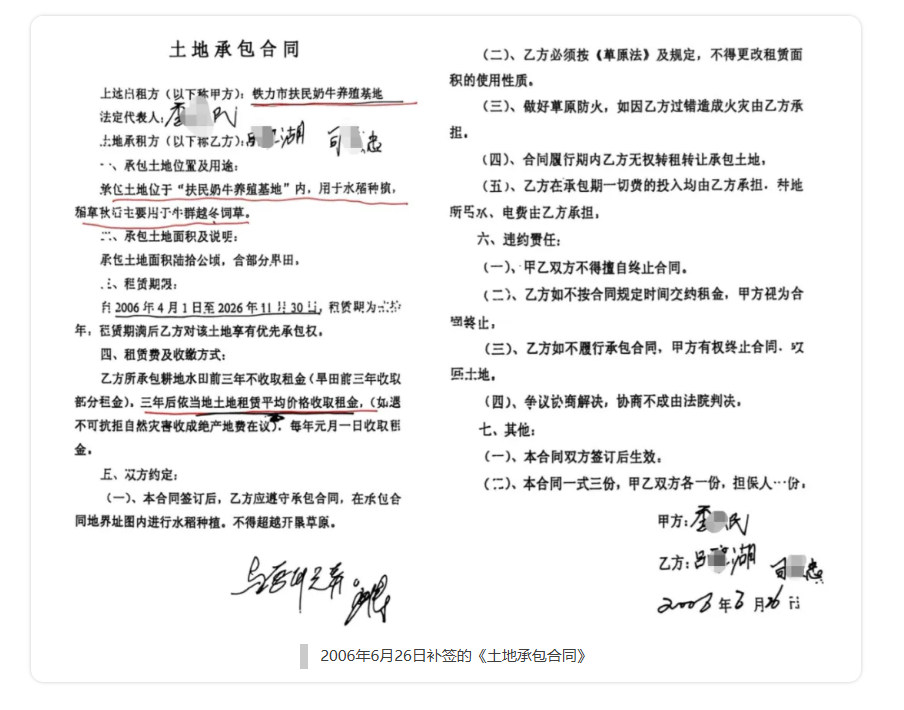 土地承包合同
上述出租方（以下称甲方）：铁力市扶民奶牛养殖基地
法定代表人：李 民
土地承租方（以下称乙方）：吕 湖 司 忠
一、承包土地位置及用途：
承包土地位于“扶民奶牛养殖基地”内，用于水稻种植，
稻草秋后主要用于牛群越冬饲草。
二、承包土地面积及说明：
承包土地面积陆拾公顷，含部分旱田，
三、租赁期限：
自2006年4月1日至2026年11月30日，租赁期为
年，租赁期满后乙方对该土地享有优先承包权。
四、租赁费及收缴方式：
乙方所承包耕地水田前三年不收取租金（旱田前三年收取
部分租金），三年后依当地土地租赁平均价格收取租金，（如遇
不可抗拒自然灾害收成绝产地费在议），每年元月一日收取租
金。
五、双方约定：
（一）、本合同签订后，乙方应遵守承包合同，在承包合
同地界址图内进行水稻种植。不得超越开垦草原。
（二）、乙方必须按《草原法》及规定，不得更改租赁面
积的使用性质。
（三）、做好草原防火，如因乙方过错造成火灾由乙方承
担。
（四）、合同履行期内乙方无权转租转让承包土地，
（五）、乙方在承包期一切费的投入均由乙方承担．种地
所用水、电费由乙方承担，
六、违约责任：
（一）、甲乙双方不得擅自终止合同。
（二）、乙方如不按合同规定时间交纳租金，甲方视为合
同终止，
（三）、乙方如不履行承包合同，甲方有权终止合同．收
回土地。
（四）、争议协商解决，协商不成由法院判决，
七、其他：
（一）、本合同双方签订后生效。
（二）、本合同一式三份，甲乙双方各一份，担保人一份，
甲方：李 民
乙方：吕 湖 司 忠
2006年6月26日
2006年6月26日补签的《土地承包合同》